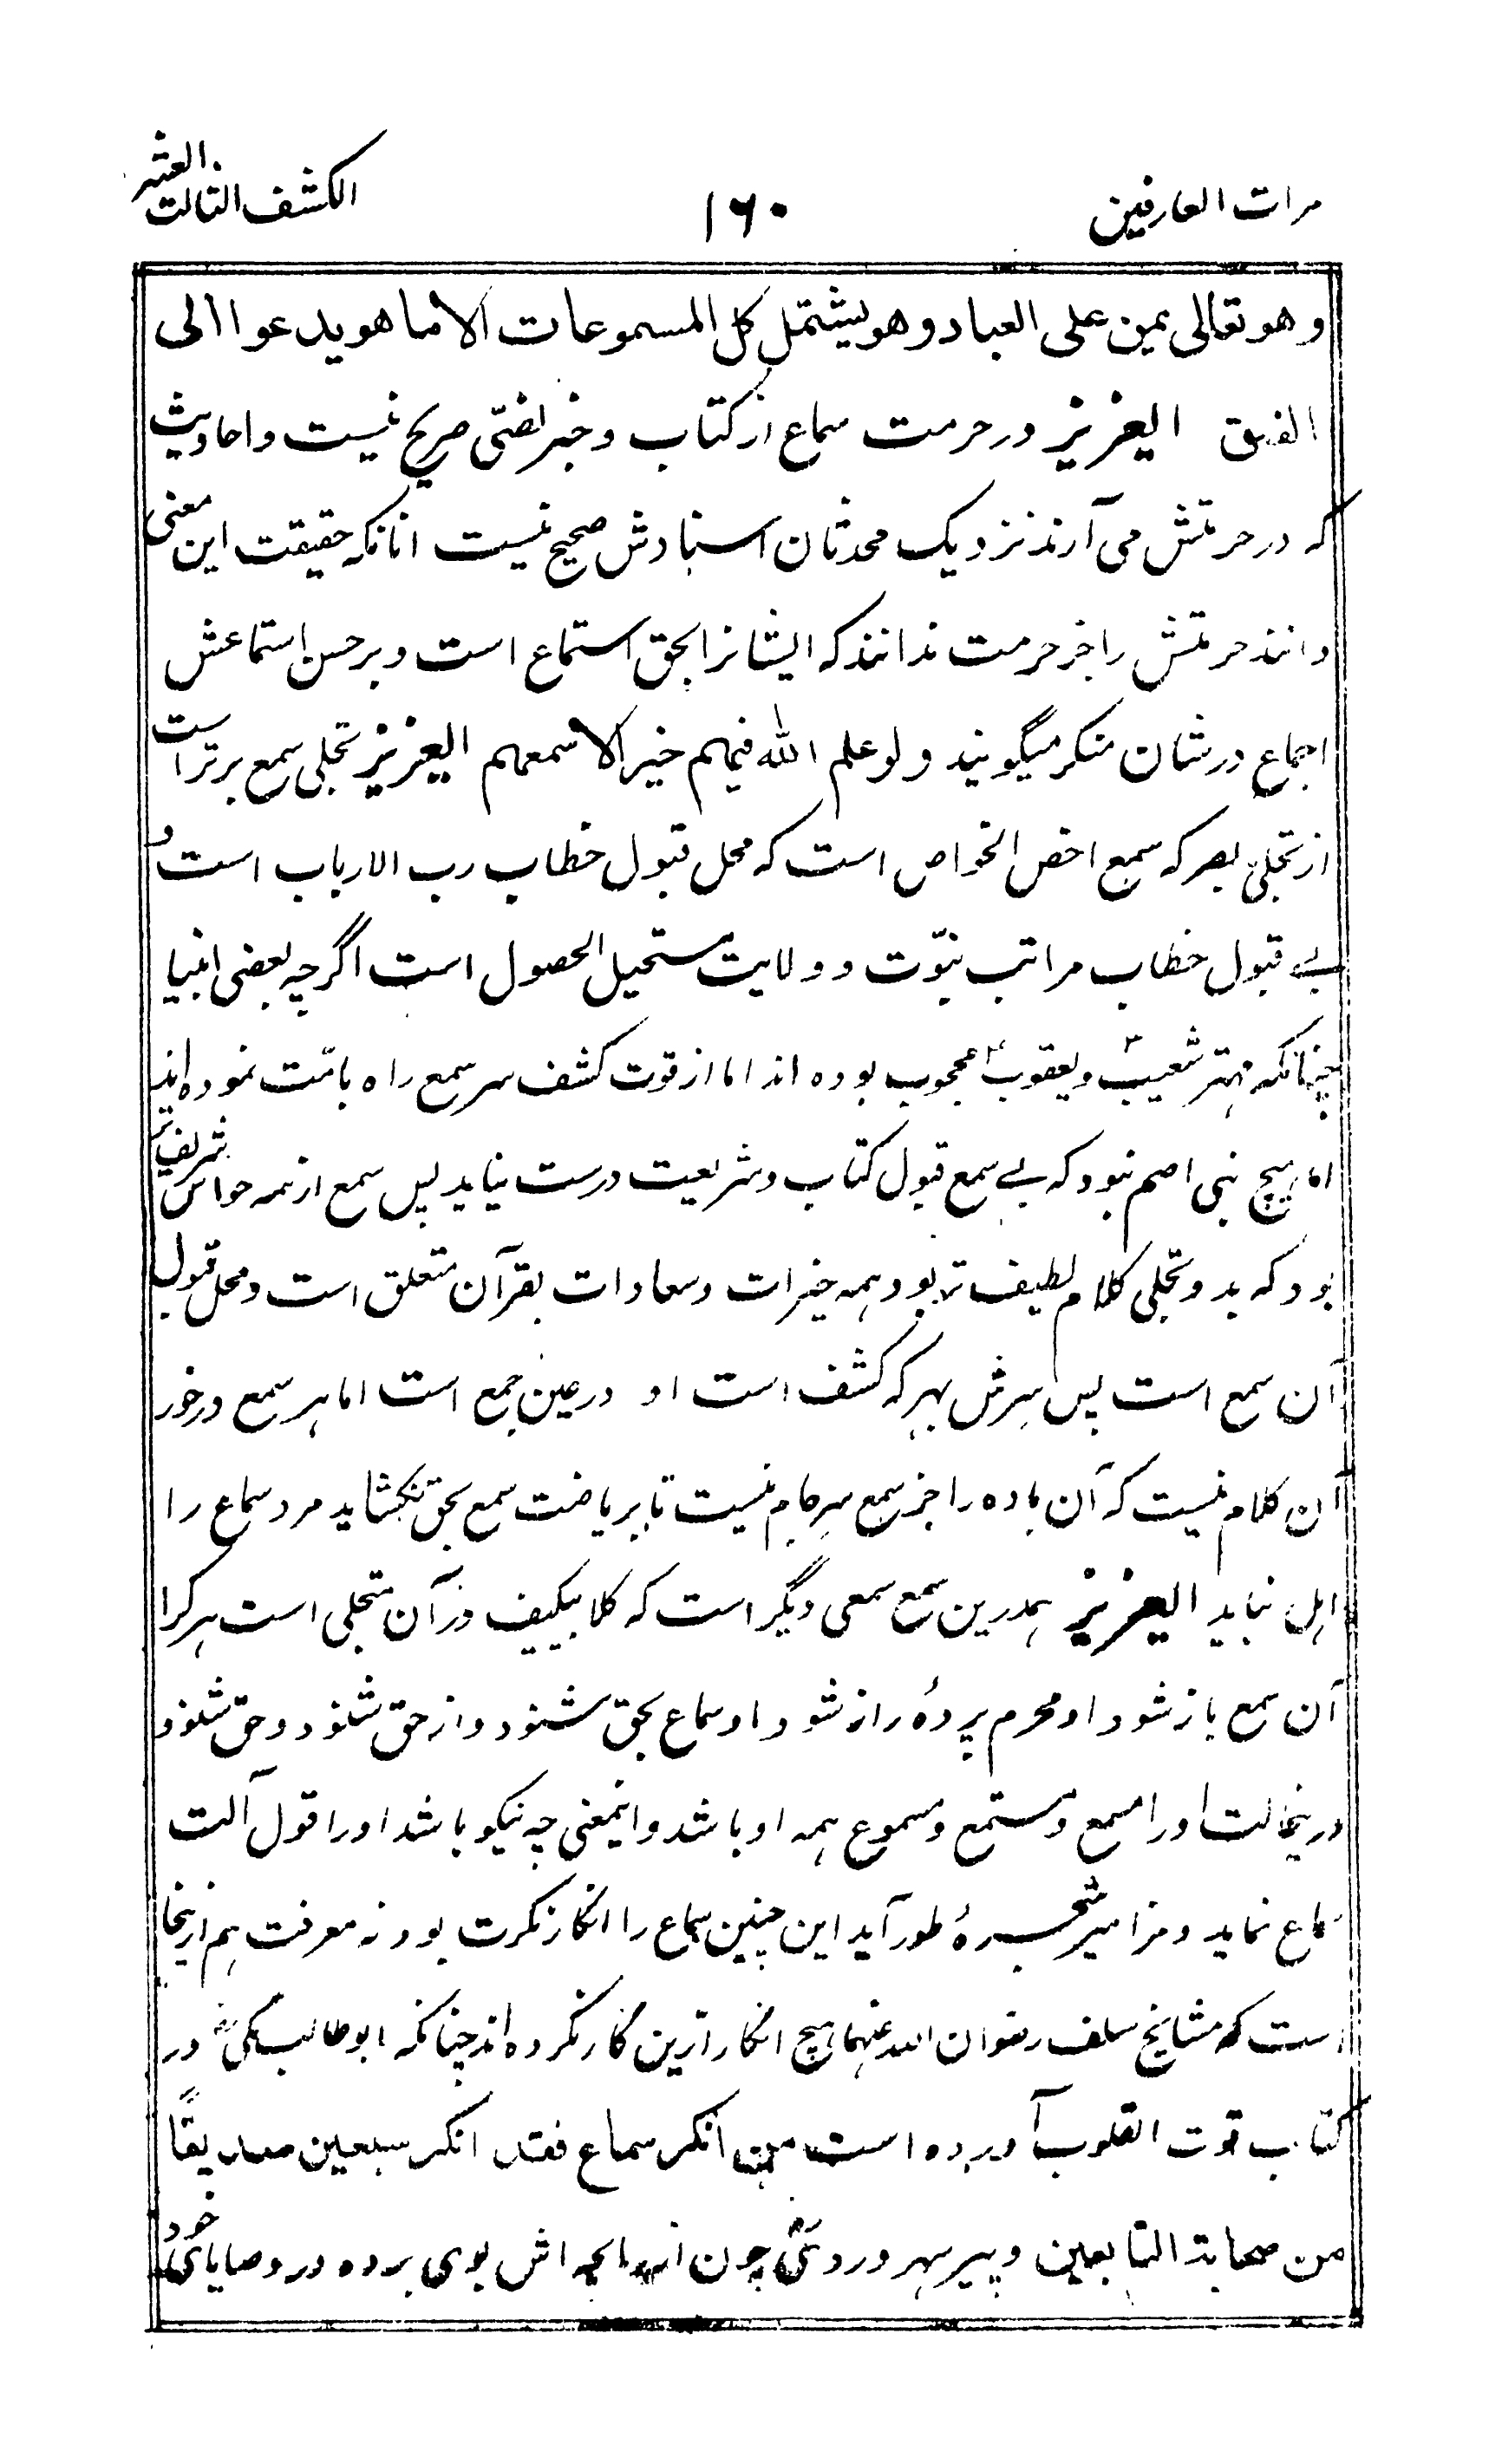 مرات العارفین ۱۶۰ الکشف الثالث العشر
وهو تعالی یمن علی العباد وهو یشتمل کل المسموعات الا ما هو یدعوا الی
الفسق العزیز در حرمت سماع از کتاب و خبر نصّی صریح نیست و احادیث
که در حرمتش می آرند نزدیک محدثان اسنادش صحیح نیست انانکه حقیقت این معنی
دانند حرمتش را جز حرمت ندانند که ایشانرا بحق استماع است و بر حسن استماعش
اجماع در شان منکر میگویند ولو علم الله فیهم خیرا لاسمعهم العزیز تجلی سمع برتر است
از تجلی بصر که سمع اخص الخواص است که محل قبول خطاب رب الارباب است و
بے قبول خطاب مراتب نبوّت و ولایت مستحیل الحصول است اگرچه بعضی انبیا
چنانکه مهتر شعیب و یعقوب محجوب بوده اند اما از قوت کشف سر سمع راه بامّت نموده اند
اما هیچ نبی اصم نبود که بے سمع قبول کتاب و شریعت درست نیاید پس سمع از همه حواس شریف تر
بود که بدو تجلی کلام لطیف تر بود همه خیرات و سعادات بقرآن متعلق است و محل قبول
آن سمع است پس سرش بهر که کشف است او در عین جمع است اما هر سمع در خور
آن کلام نیست که آن باده را جز سمع سر جام نیست تا بریاضت سمع بحق نکشاید مرد سماع را
اهل نباید العزیز همدرین سمع سمعی دیگر است که کلا بیکیف در آن متجلی است هر کرا
آن سمع باز شود او محرم پردۀ راز شود او سماع بحق شنود و از حق شنود و حق شنود
درینحالت او را مسمع و مستمع و مسموع همه او باشد و اینمعنی چه نیکو باشد او را قول آلت
سماع نماید و مزامیر شجرۀ طور آید این چنین سماع را انکار نکرت بود نه معرفت هم از ینجا
است که مشایخ سلف رضوان الله عنهما هیچ انکار ازین کار نکرده اند چنانکه ابو طالب مکی در
کتاب قوت القلوب آورده است من انکر سماع فقد انکر سبعین صدیقًا
من صحابة التابعین و پیر سهروردی چون از اش بوی برده در وصایای خود